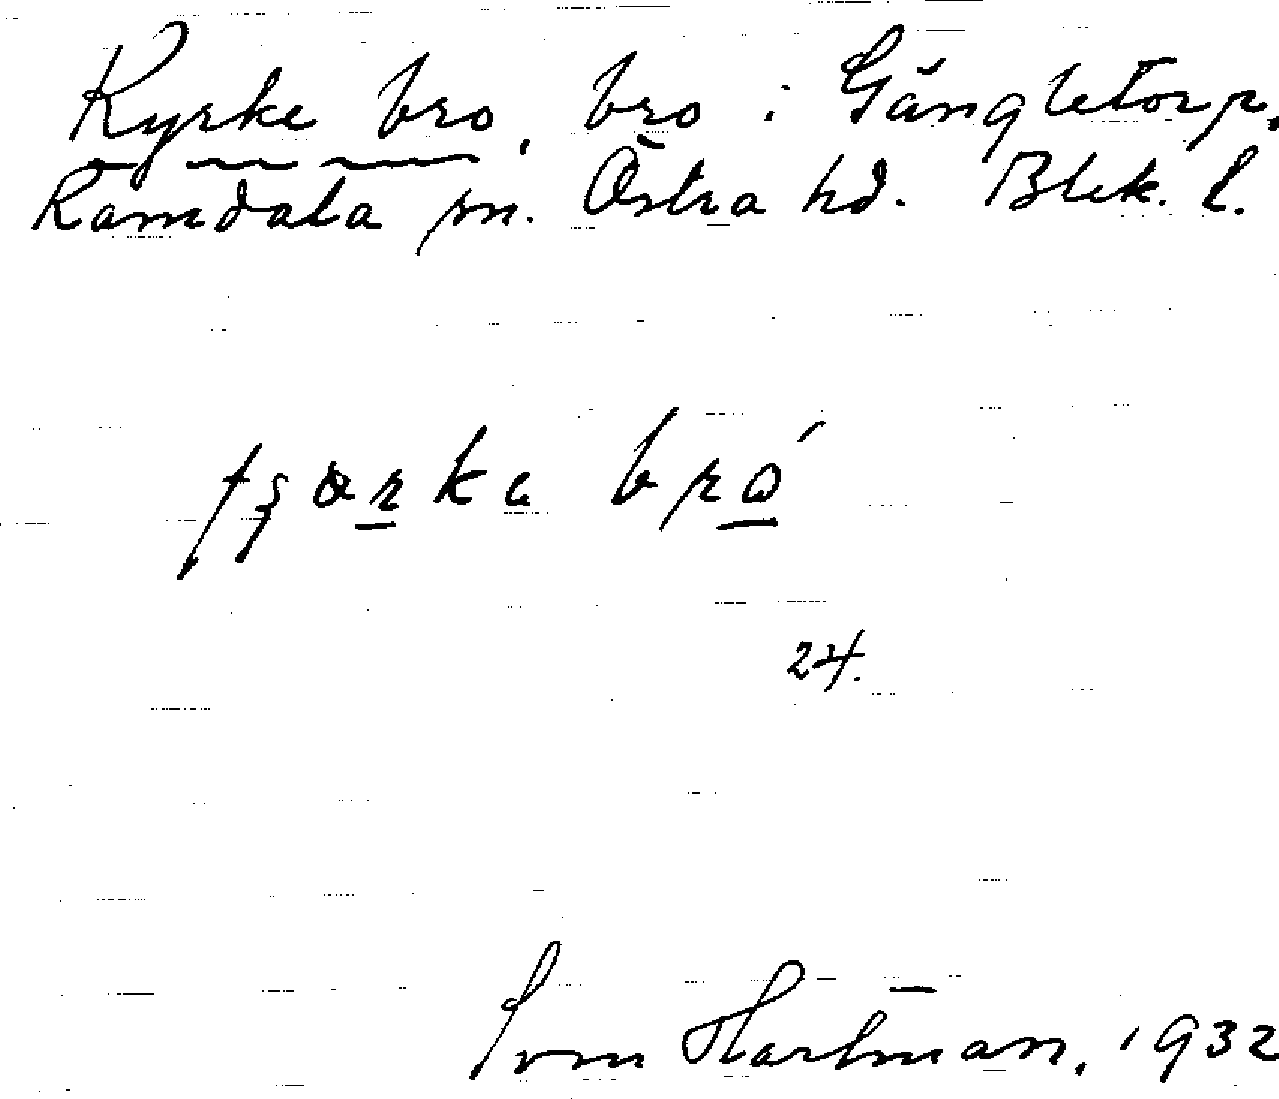 Kyrke bro, bro i Gängletorp,
Ramdala sn. Östra hd. Blek. l.
bro
24.
Sven Hartman, 1932